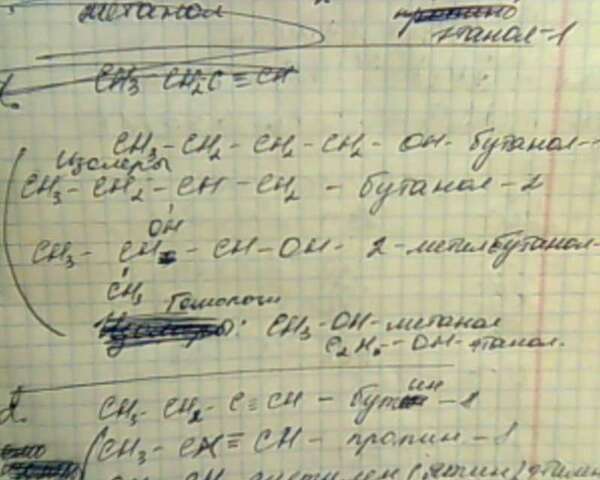 метанол
этанол-1
1. CH3-CH2C≡CH
CH3-CH2-CH2-CH2-OH-бутанол-
Изомеры
CH3-CH2-CH-CH2-бутанол-2
OH
CH3-CH-CH-OH-2-метилбутанол-
CH3
Гомологи
CH3-OH-метанол
-OH-этанол.
2. CH3-CH2-C≡CH-бутин-1
CH3-CH≡CH-пропин-1